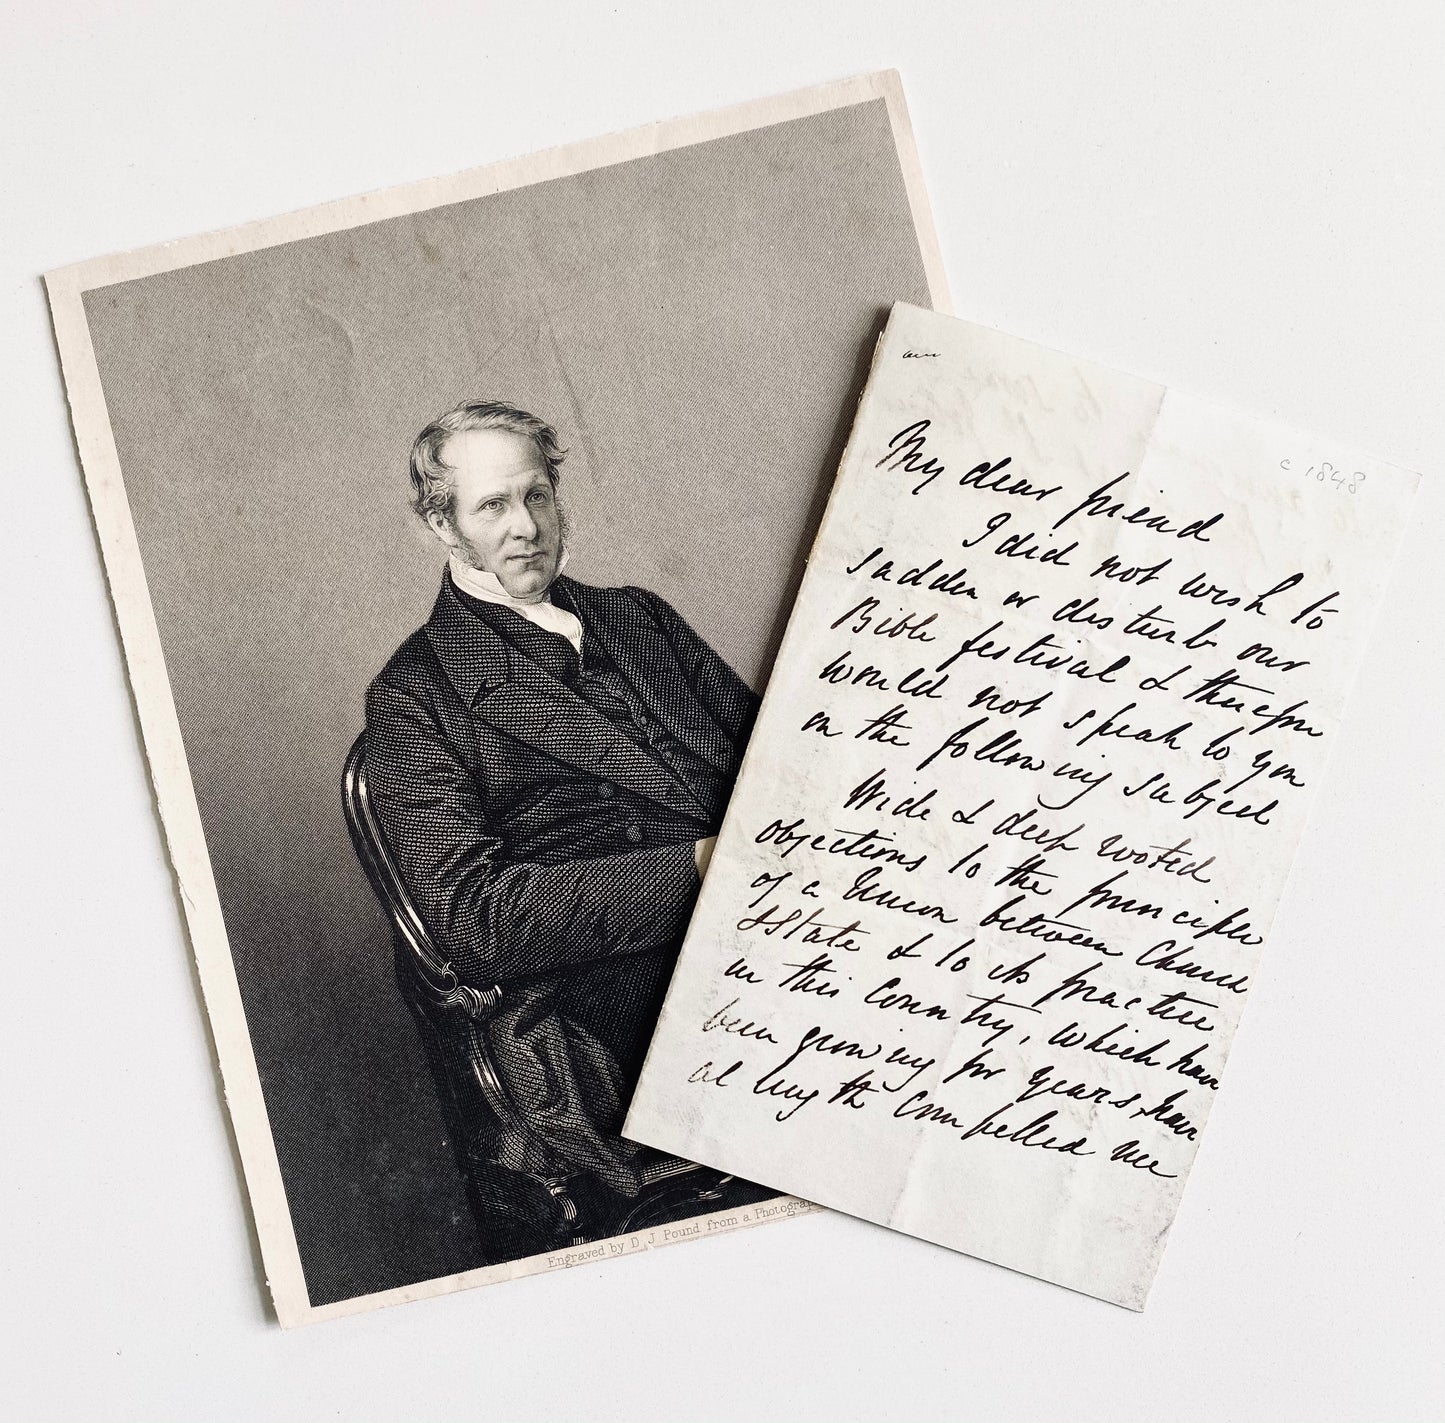 Engraved by D J Pound from a Photograp
c 1848
My dear friend
I did not wish to
sadden or disturb our
Bible festival & therefore
would not speak to you
on the following subject
Wide & deep rooted
objections to the principle
of a Union between Church
& State & to its practice
in this Country, which have
been growing for years, have
at length compelled me